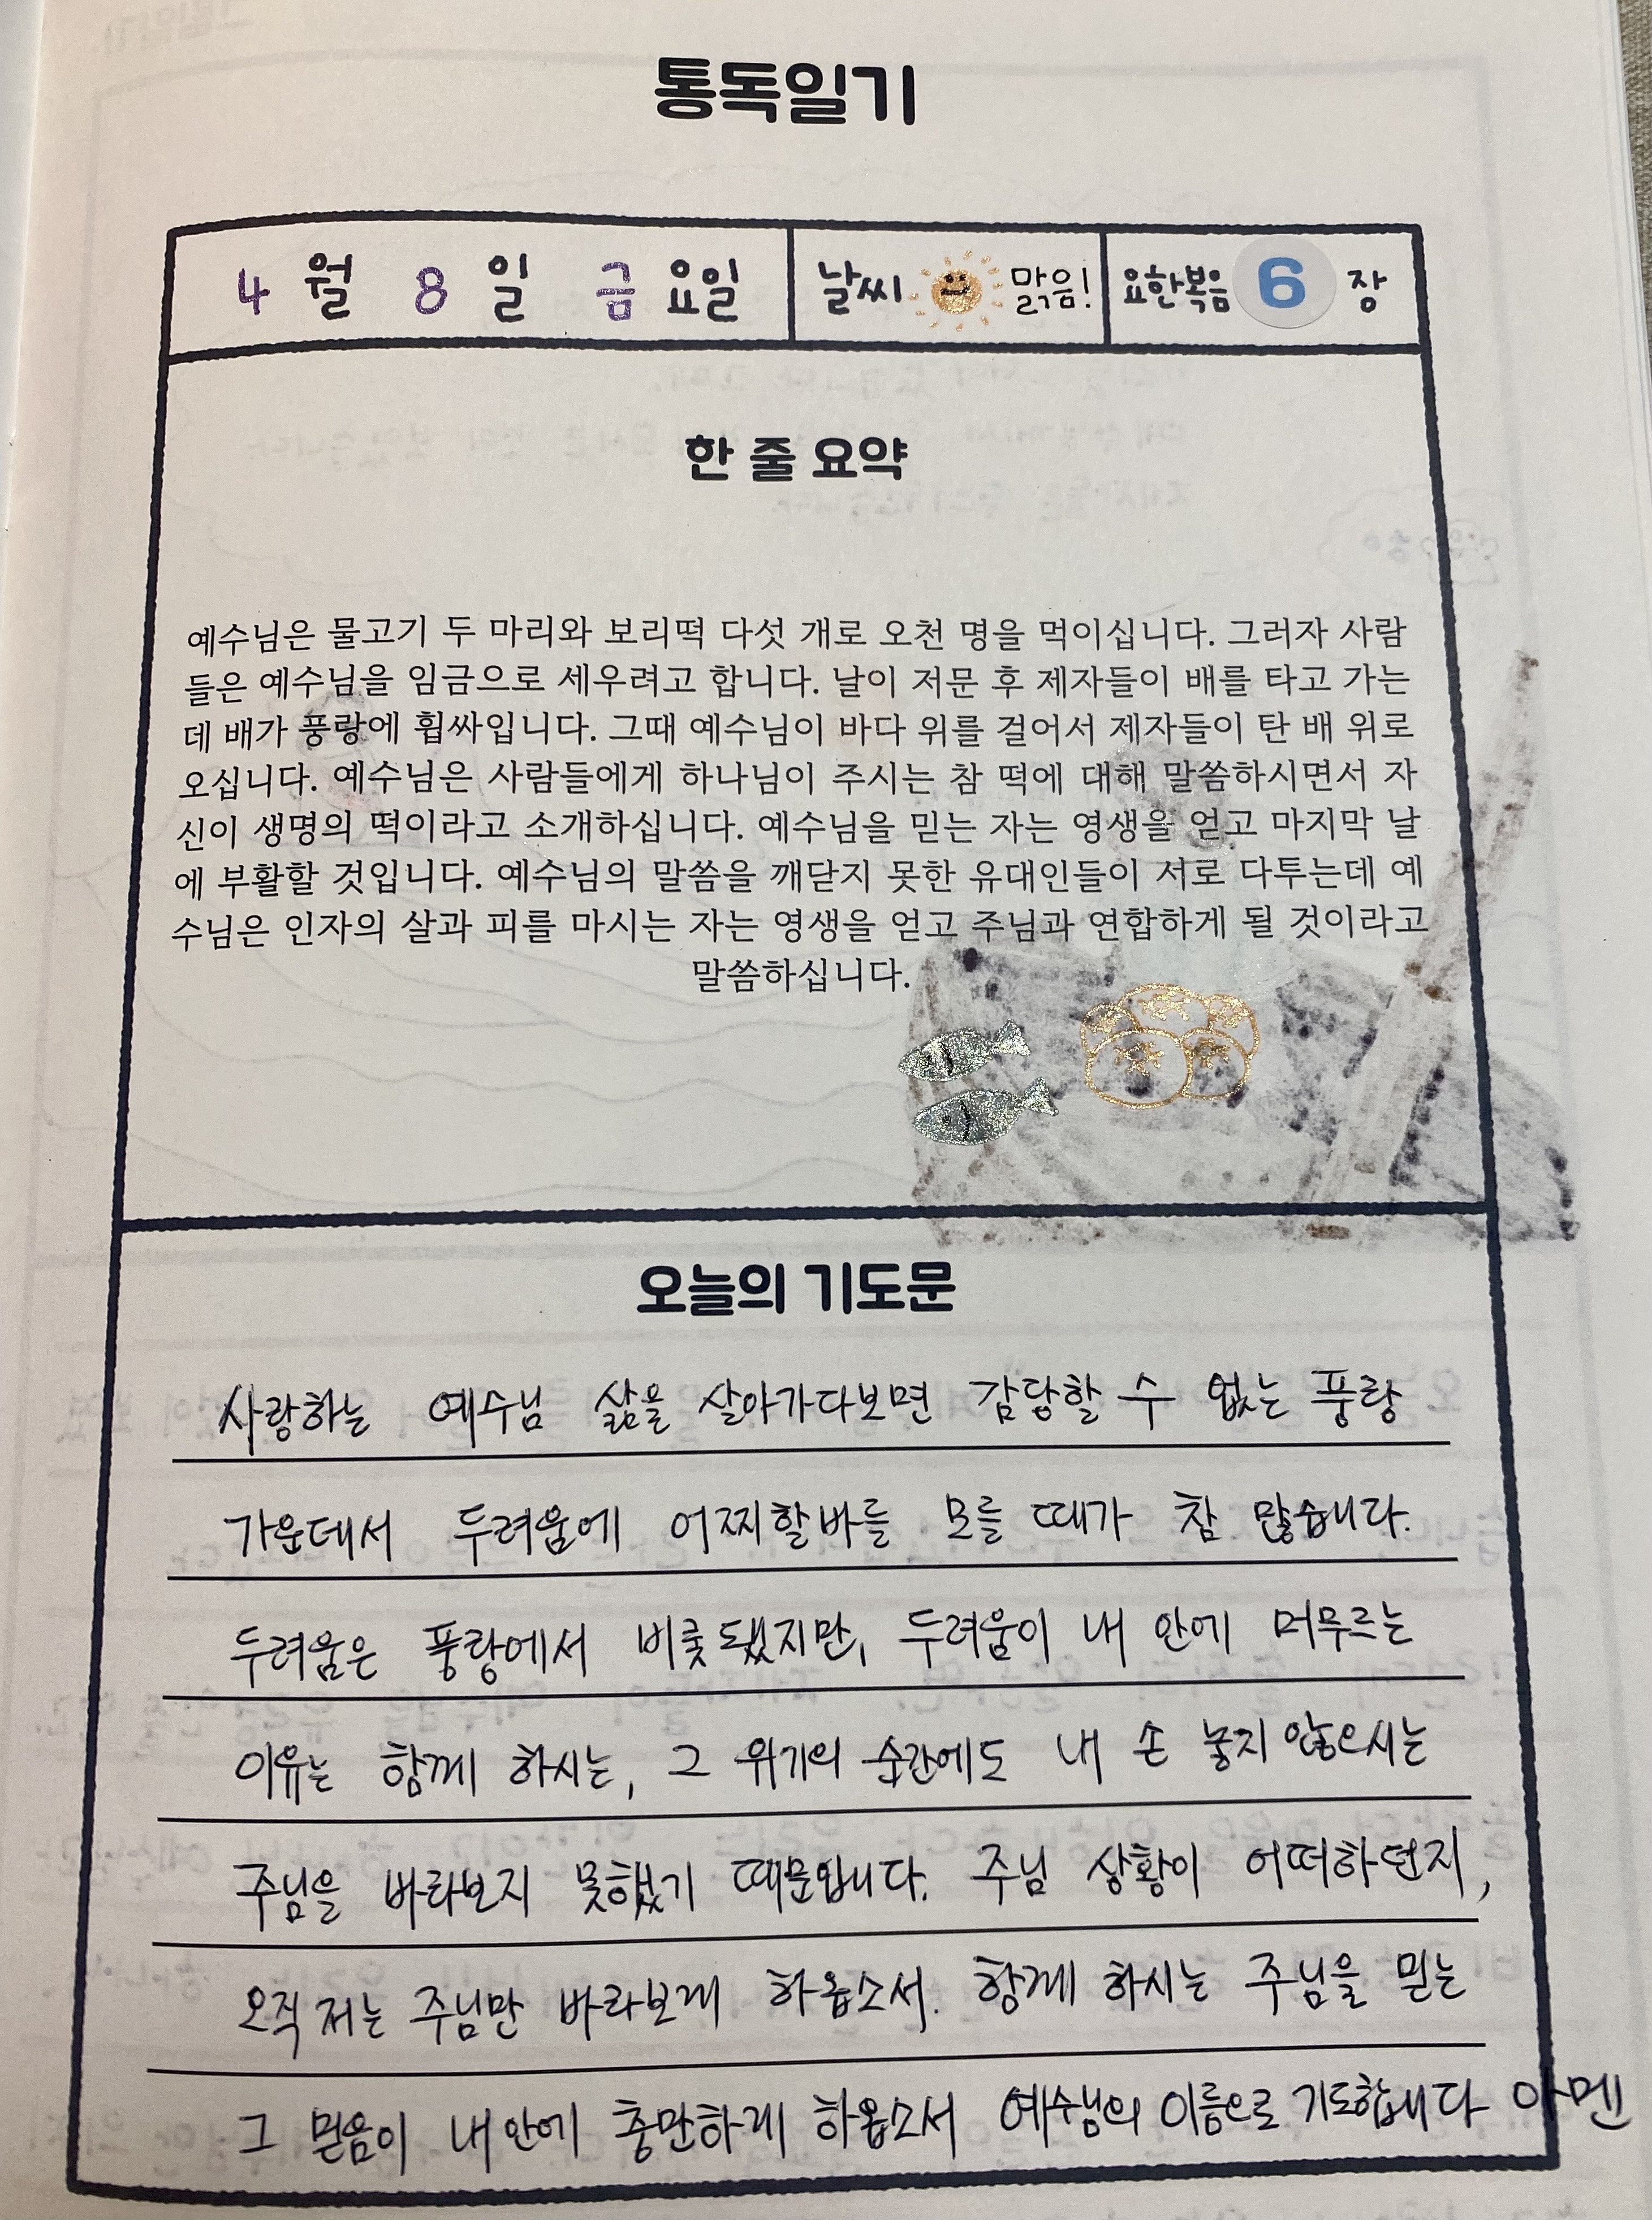 통독일기
4월 8일 금요일 날씨 맑음! 요한복음 6 장
한 줄 요약
예수님은 물고기 두 마리와 보리떡 다섯 개로 오천 명을 먹이십니다. 그러자 사람
들은 예수님을 임금으로 세우려고 합니다. 날이 저문 후 제자들이 배를 타고 가는
데 배가 풍랑에 휩싸입니다. 그때 예수님이 바다 위를 걸어서 제자들이 탄 배 위로
오십니다. 예수님은 사람들에게 하나님이 주시는 참 떡에 대해 말씀하시면서 자
신이 생명의 떡이라고 소개하십니다. 예수님을 믿는 자는 영생을 얻고 마지막 날
에 부활할 것입니다. 예수님의 말씀을 깨닫지 못한 유대인들이 서로 다투는데 예
수님은 인자의 살과 피를 마시는 자는 영생을 얻고 주님과 연합하게 될 것이라고
말씀하십니다.
오늘의 기도문
사랑하는 예수님 삶을 살아가다보면 감당할 수 없는 풍랑
가운데서 두려움에 어찌할바를 모를 때가 참 많습니다.
두려움은 풍랑에서 비롯됐지만, 두려움이 내 안에 머무르는
이유는 함께 하시는, 그 위기의 순간에도 내 손 놓지 않으시는
주님을 바라보지 못했기 때문입니다. 주님 상황이 어떠하던지,
오직 저는 주님만 바라보게 하옵소서. 함께 하시는 주님을 믿는
그 믿음이 내 안에 충만하게 하옵소서 예수님의 이름으로 기도합니다 아멘